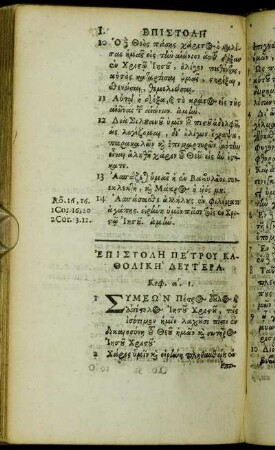 I. ΕΠΙΣΤΟΛΗ
10 Ὁ δὲ Θεὸς πάσης χάριτος ὁ καλέ-
σας ἡμᾶς εἰς τὴν αἰώνιον αὐτοῦ δόξαν
ἐν Χριστῷ Ἰησοῦ, ὀλίγον παθόντας,
αὐτὸς καταρτίσαι ὑμᾶς, στηρίξαι,
σθενώσαι, θεμελιώσαι.
11 Αὐτῷ ἡ δόξα, καὶ τὸ κράτος εἰς τοὺς
αἰῶνας τῶν αἰώνων. ἀμήν.
12 Διὰ Σιλουανοῦ ὑμῖν τοῦ πιστοῦ ἀδελφοῦ,
ὡς λογίζομαι, δι' ὀλίγων ἔγραψα,
παρακαλῶν καὶ ἐπιμαρτυρῶν ταύτην
εἶναι ἀληθῆ χάριν τοῦ Θεοῦ εἰς ἣν ἑστή-
κατε.
13 Ἀσπάζεται ὑμᾶς ἡ ἐν Βαβυλῶνι συν-
εκλεκτὴ, καὶ Μάρκος ὁ υἱός μου.
Rō. 16, 16. 14 Ἀσπάσασθε ἀλλήλους ἐν φιλήματι
1Cor. 16, 20 ἀγάπης. εἰρήνη ὑμῖν πᾶσι τοῖς ἐν Χρι-
2Cor. 13. 12. στῷ Ἰησοῦ. ἀμήν.
ἘΠΙΣΤΟΛΗ ΠΕΤΡΟΥ ΚΑ-
ΘΟΛΙΚΗ ΔΕΥΤΕΡΑ.
Κεφ. α. 1.
1 ΣΥΜΕΩΝ Πέτρος δοῦλος καὶ
ἀπόστολος Ἰησοῦ Χριστοῦ, τοῖς
ἰσότιμον ἡμῖν λαχοῦσι πίστιν ἐν
δικαιοσύνῃ τοῦ Θεοῦ ἡμῶν καὶ σωτῆρος
Ἰησοῦ Χριστοῦ.
2 Χάρις ὑμῖν καὶ εἰρήνη πληθυνθείη ἐν